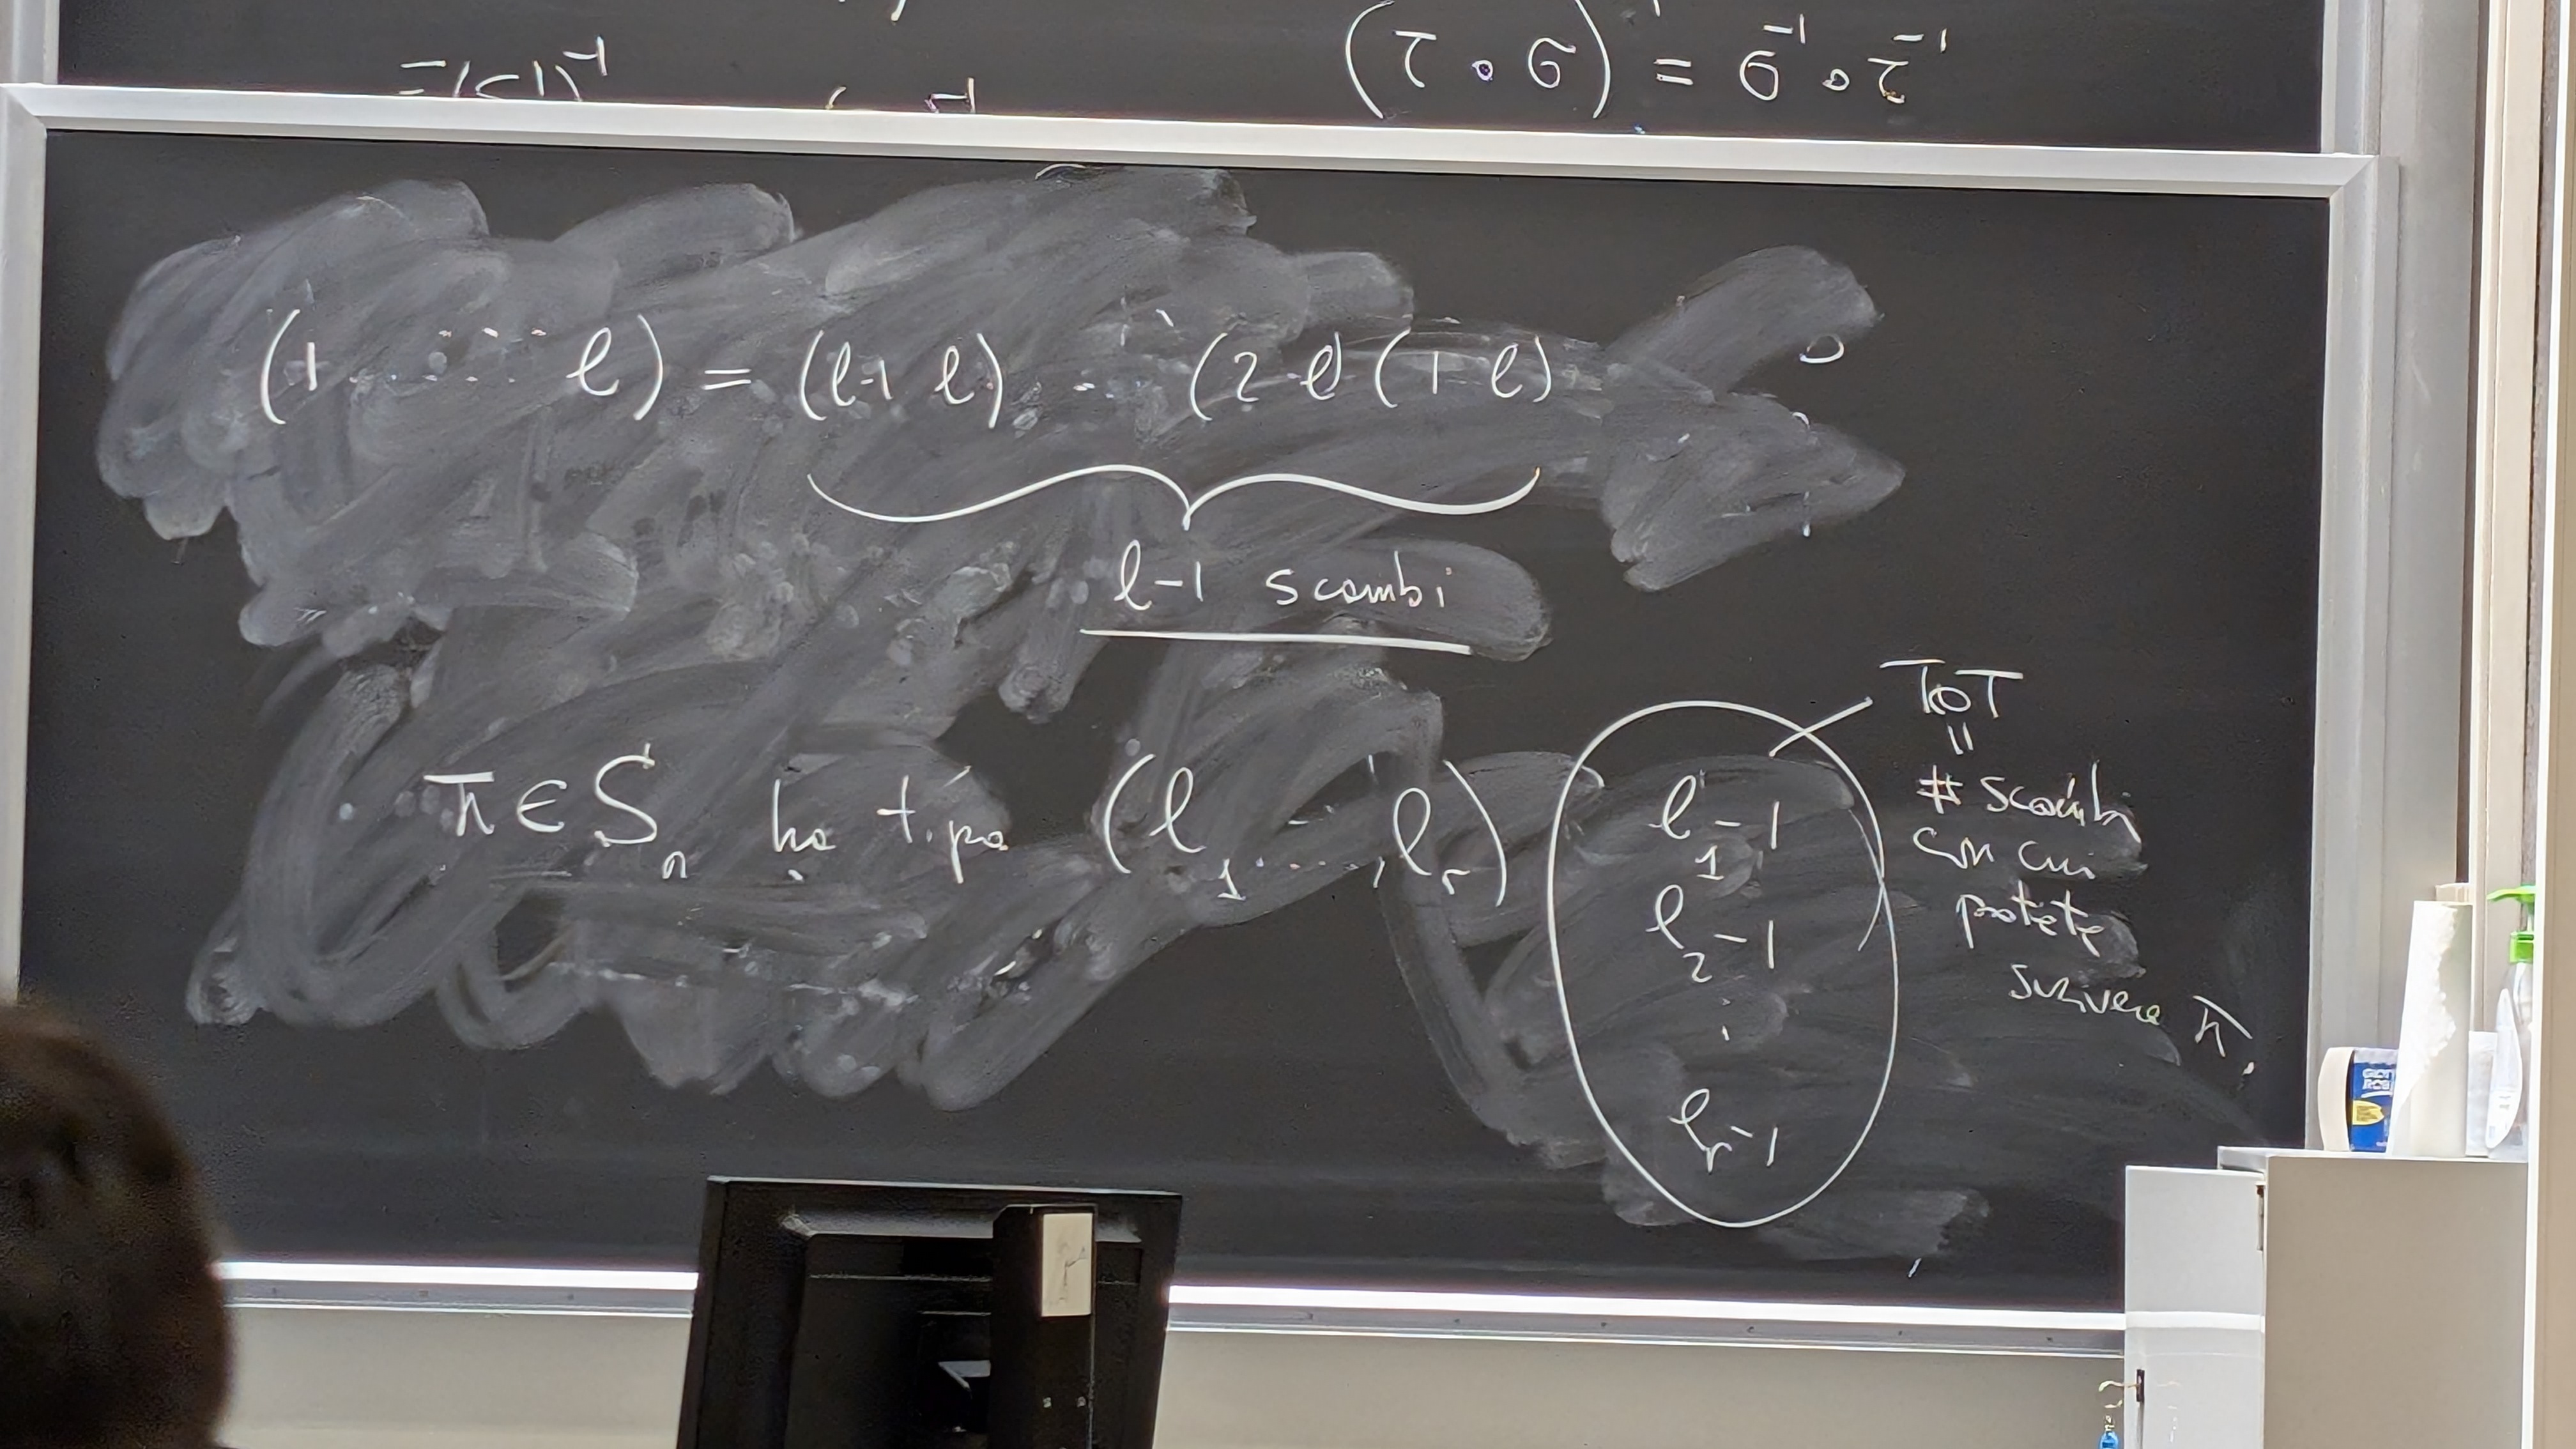 (τ ∘ σ)⁻¹ = σ⁻¹ ∘ τ⁻¹
(1 ..... ℓ) = (ℓ-1 ℓ) ... (2 ℓ)(1 ℓ)
ℓ-1 scambi
π ∈ Sₙ ha tipo (ℓ₁ ...., ℓᵣ)
ℓ₁-1
ℓ₂-1
⋮
ℓᵣ-1
TOT
=
# scambi
con cui
potete
scrivere π.